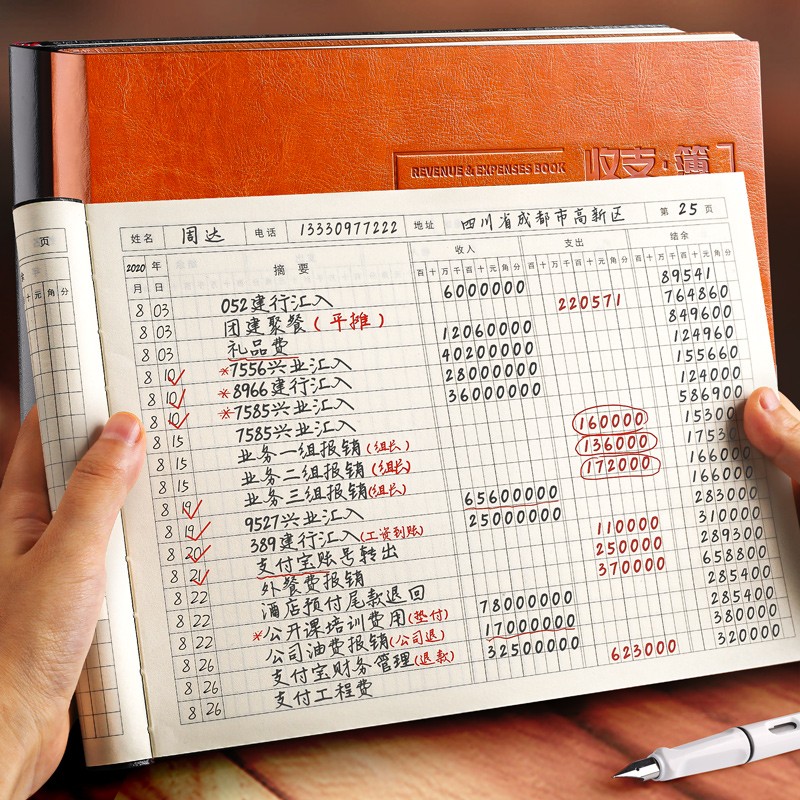 REVENUE & EXPENSES BOOK
收支·簿
页
十元角分
姓名 周达 电话 13330977222 地址 四川省成都市高新区 第 25 页
2020 年 摘要 收入 支出 结余
月 日 百十万千百十元角分 百十万千百十元角分 百十万千百十元角分
8 03 052建行汇入 6000000 89541
8 03 团建聚餐(平摊) 220571 764860
8 03 礼品费 12060000 849600
8 10 *7556兴业汇入 40200000 124960
8 10 *8966建行汇入 28000000 155660
8 10 *7585兴业汇入 36000000 124000
8 15 7585兴业汇入 586900
8 15 业务一组报销(组长) 160000 15300
8 15 业务二组报销(组长) 136000 17530
8 19 业务三组报销(组长) 172000 166000
8 19 9527兴业汇入 65600000 166000
8 20 389建行汇入(工资到账) 25000000 283000
8 21 支付宝账号转出 110000 310000
8 22 外餐费报销 250000 289300
8 22 酒店预付尾款退回 370000 658800
8 22 *公开课培训费用(垫付) 78000000 285400
8 26 公司油费报销(公司退) 17000000 285400
8 26 支付宝财务管理(退款) 32500000 380000
8 26 支付工程费 623000 320000